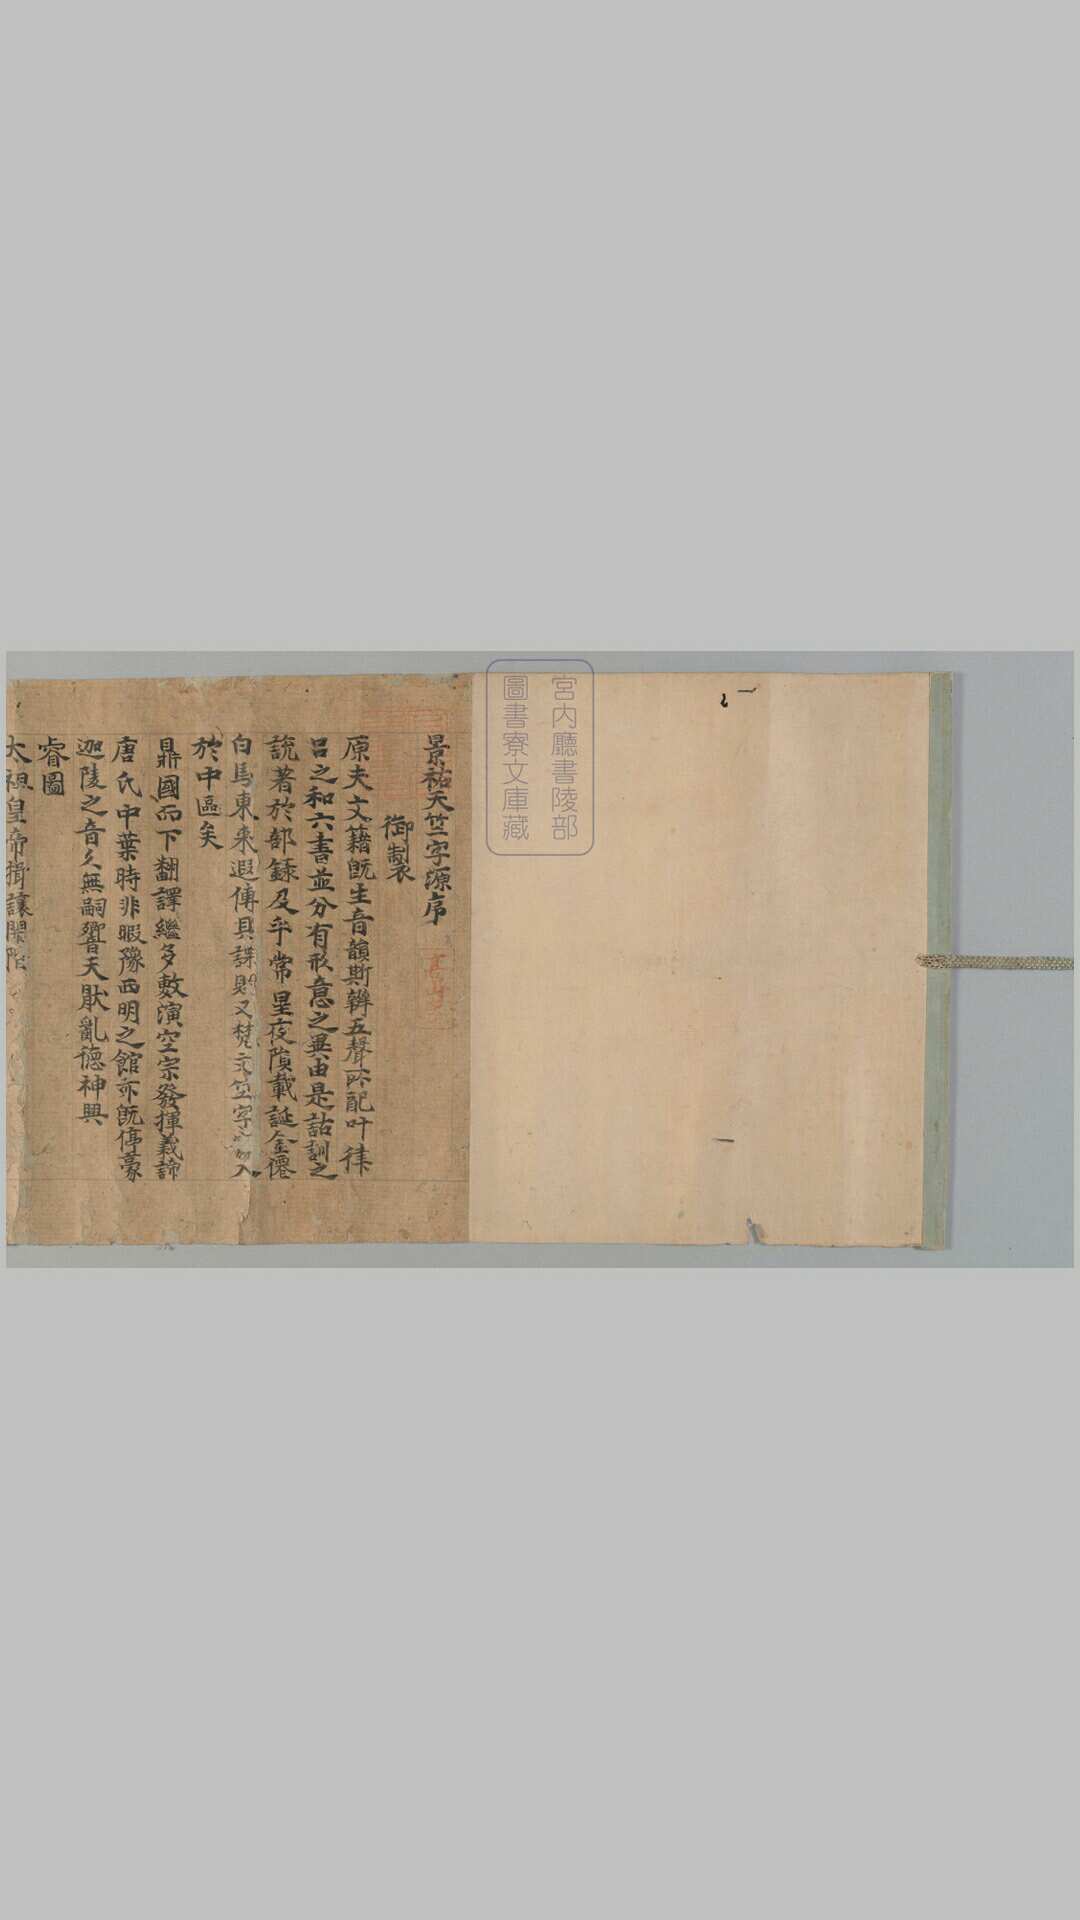 宮内廳書陵部
圖書寮文庫藏
景祐天竺字源序
御製
原夫文籍既生音韻斯辨五聲所配叶律
呂之和六書並分有形意之異由是詁訓之
說著於部録及乎常星夜隕載誕金僊
白馬東来遐傳具諜則又梵文竺字入
於中區矣
鼎國而下翻譯繼多敷演空宗發揮義諦
唐氏中葉時非暇豫西明之館亦既停毫
迦陵之音久無嗣響天猒亂德神興
睿圖
太祖皇帝揖讓開階